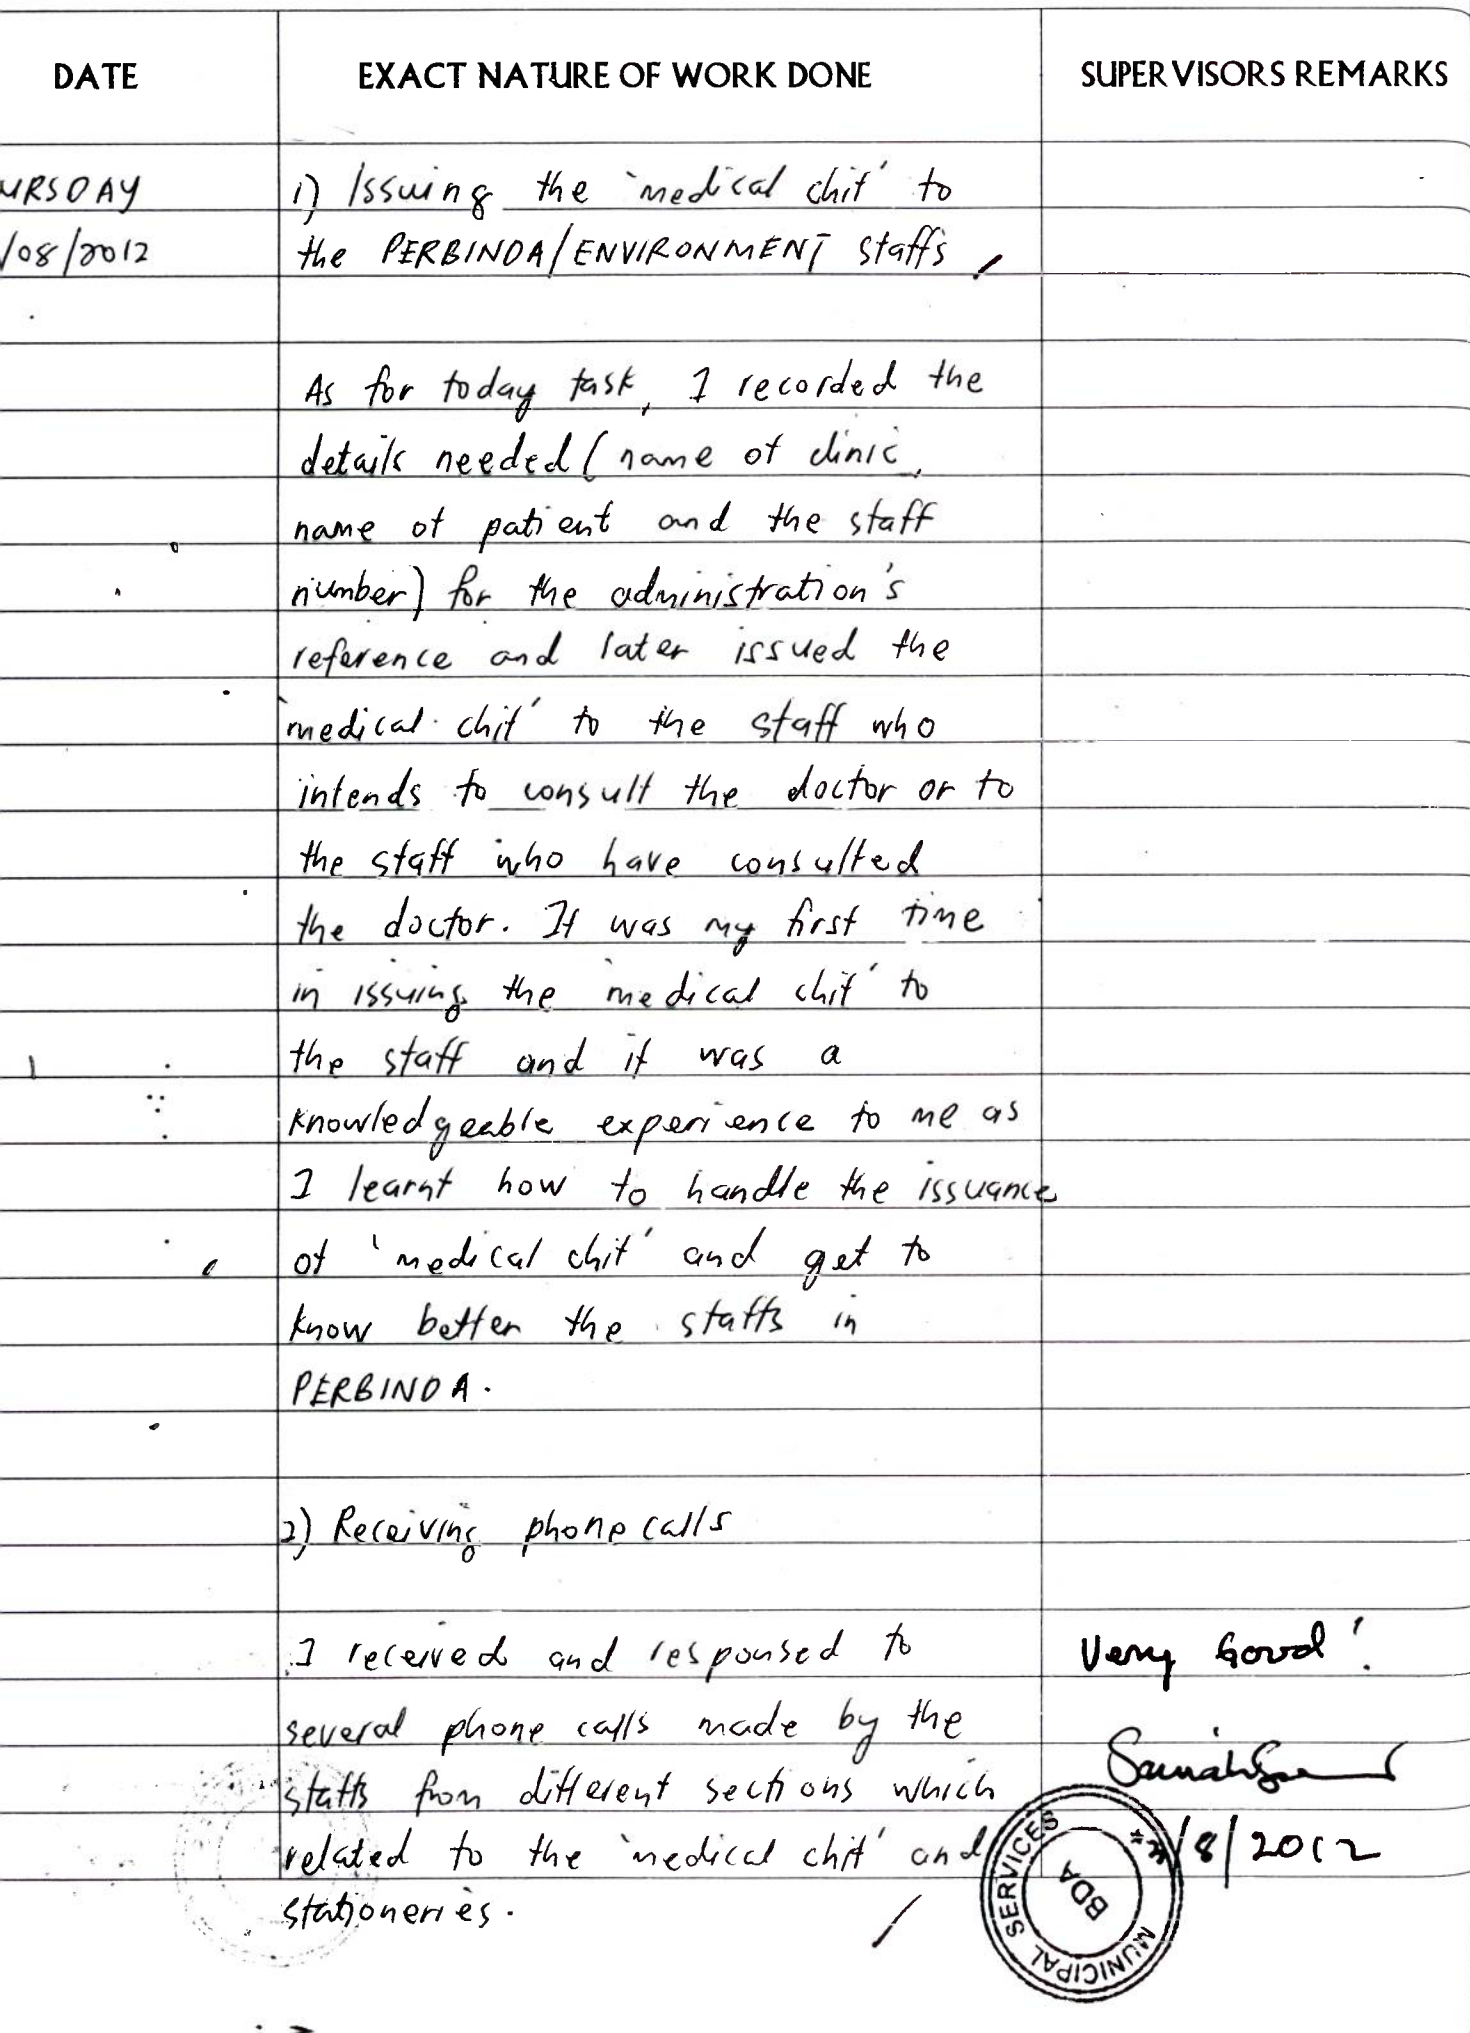 DATE EXACT NATURE OF WORK DONE SUPERVISORS REMARKS
URSDAY 1) Issuing the 'medical chit' to
/08/2012 the PERBINDA/ENVIRONMENT staffs
As for today task, I recorded the
details needed (name of clinic,
name of patient and the staff
number) for the administration's
reference and later issued the
'medical chit' to the staff who
intends to consult the doctor or to
the staff who have consulted
the doctor. It was my first time
in issuing the 'medical chit' to
the staff and it was a
knowledgeable experience to me as
I learnt how to handle the issuance
of 'medical chit' and get to
know better the staffs in
PERBINDA.
2) Receiving phone calls
I received and responsed to Very Good!
several phone calls made by the
staffs from different sections which
related to the 'medical chit' and /8/2012
stationeries.
MUNICIPAL SERVICES
BDA